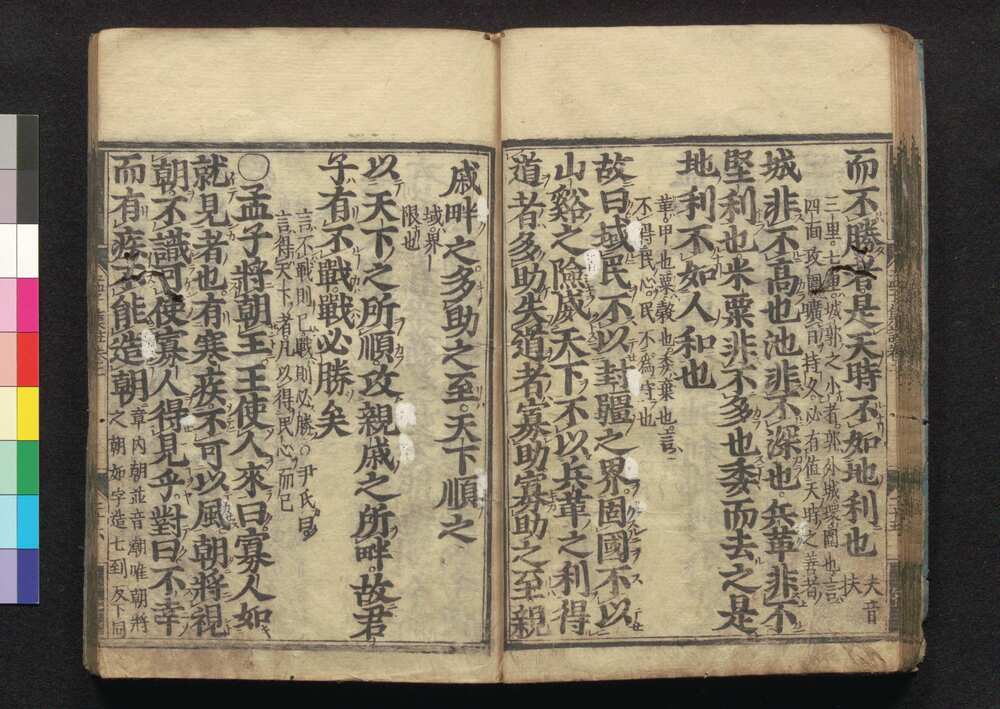 而不勝者是天時不如地利也夫音扶
三里七里城郭之小者郭外城環圍也言
四面攻圍曠日持久必有値天時之善者
城非不高也池非不深也兵革非不
堅利也米粟非不多也委而去之是
地利不如人和也
革甲也粟穀也委棄也言
不得民心民不爲守也
故曰域民不以封疆之界固國不以
山谿之險威天下不以兵革之利得
道者多助失道者寡助寡助之至親
戚畔之多助之至天下順之
域界
限也
以天下之所順攻親戚之所畔故君
子有不戰戰必勝矣
言不戰則已戰則必勝○尹氏曰
言得天下者凡以得民心而已
○孟子將朝王王使人來曰寡人如
就見者也有寒疾不可以風朝將視
朝不識可使寡人得見乎對曰不幸
而有疾不能造朝
章內朝並音潮唯朝將
之朝如字造七到反下同